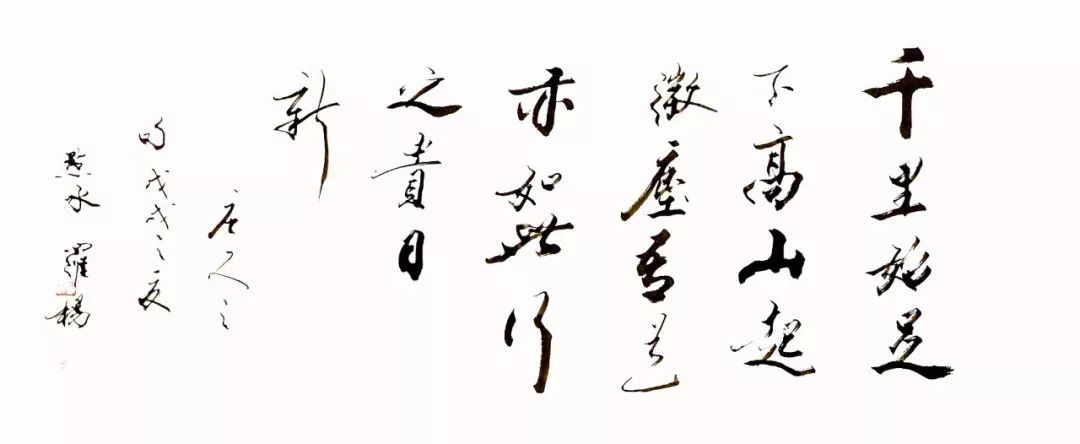 千里始足
下高山起
微塵吾道
亦如此行
之貴日
新
唐人之
句戊戌之夏
羅楊